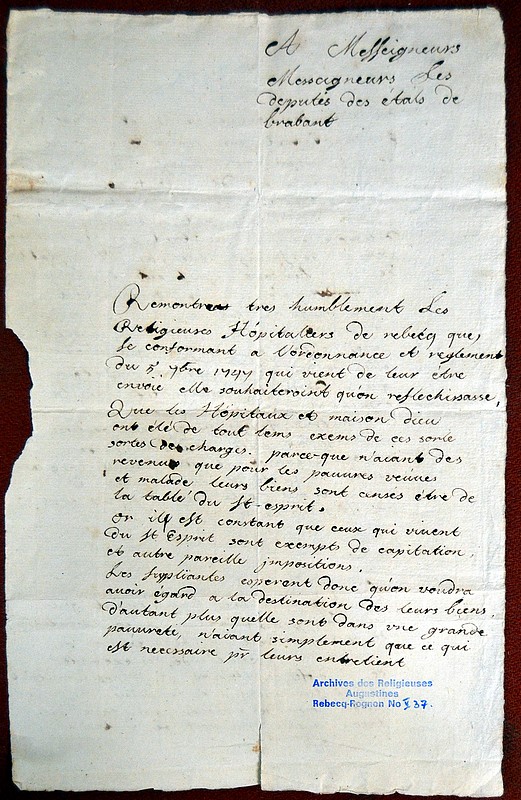 A Messeigneurs
Messeigneurs Les
deputés des états de
brabant
Remontrent tres humblement Les
Religieuses Hôpitaliers de rebecq que
se conformant a l'ordonnance et reglement
du 5e 9bre 1747 qui vient de leur être
envoie elle souhaiteroint qu'on reflechissasse,
Que les Hôpitaux et maison dieu
ont élé de tout tems exems de ces sorte
sortes de charges. parce-que n'aiant des
revenus que pour les pauvres veuves
et malade leurs biens sont censes être de
la table du st-esprit.
or ill est constant que ceux qui vivent
du st Esprit sont exempts de capitation,
et autre pareille jmpositions.
Les supliantes esperent donc qu'on voudra
avoir égard a la destination des leurs biens,
d'autant plus quelle sont dans vne grande
pauvreté, n'aiant simplement que ce qui
est necessaire pr leurs entretient
Archives des Religieuses
Augustines
Rebecq-Rognon No V 37.